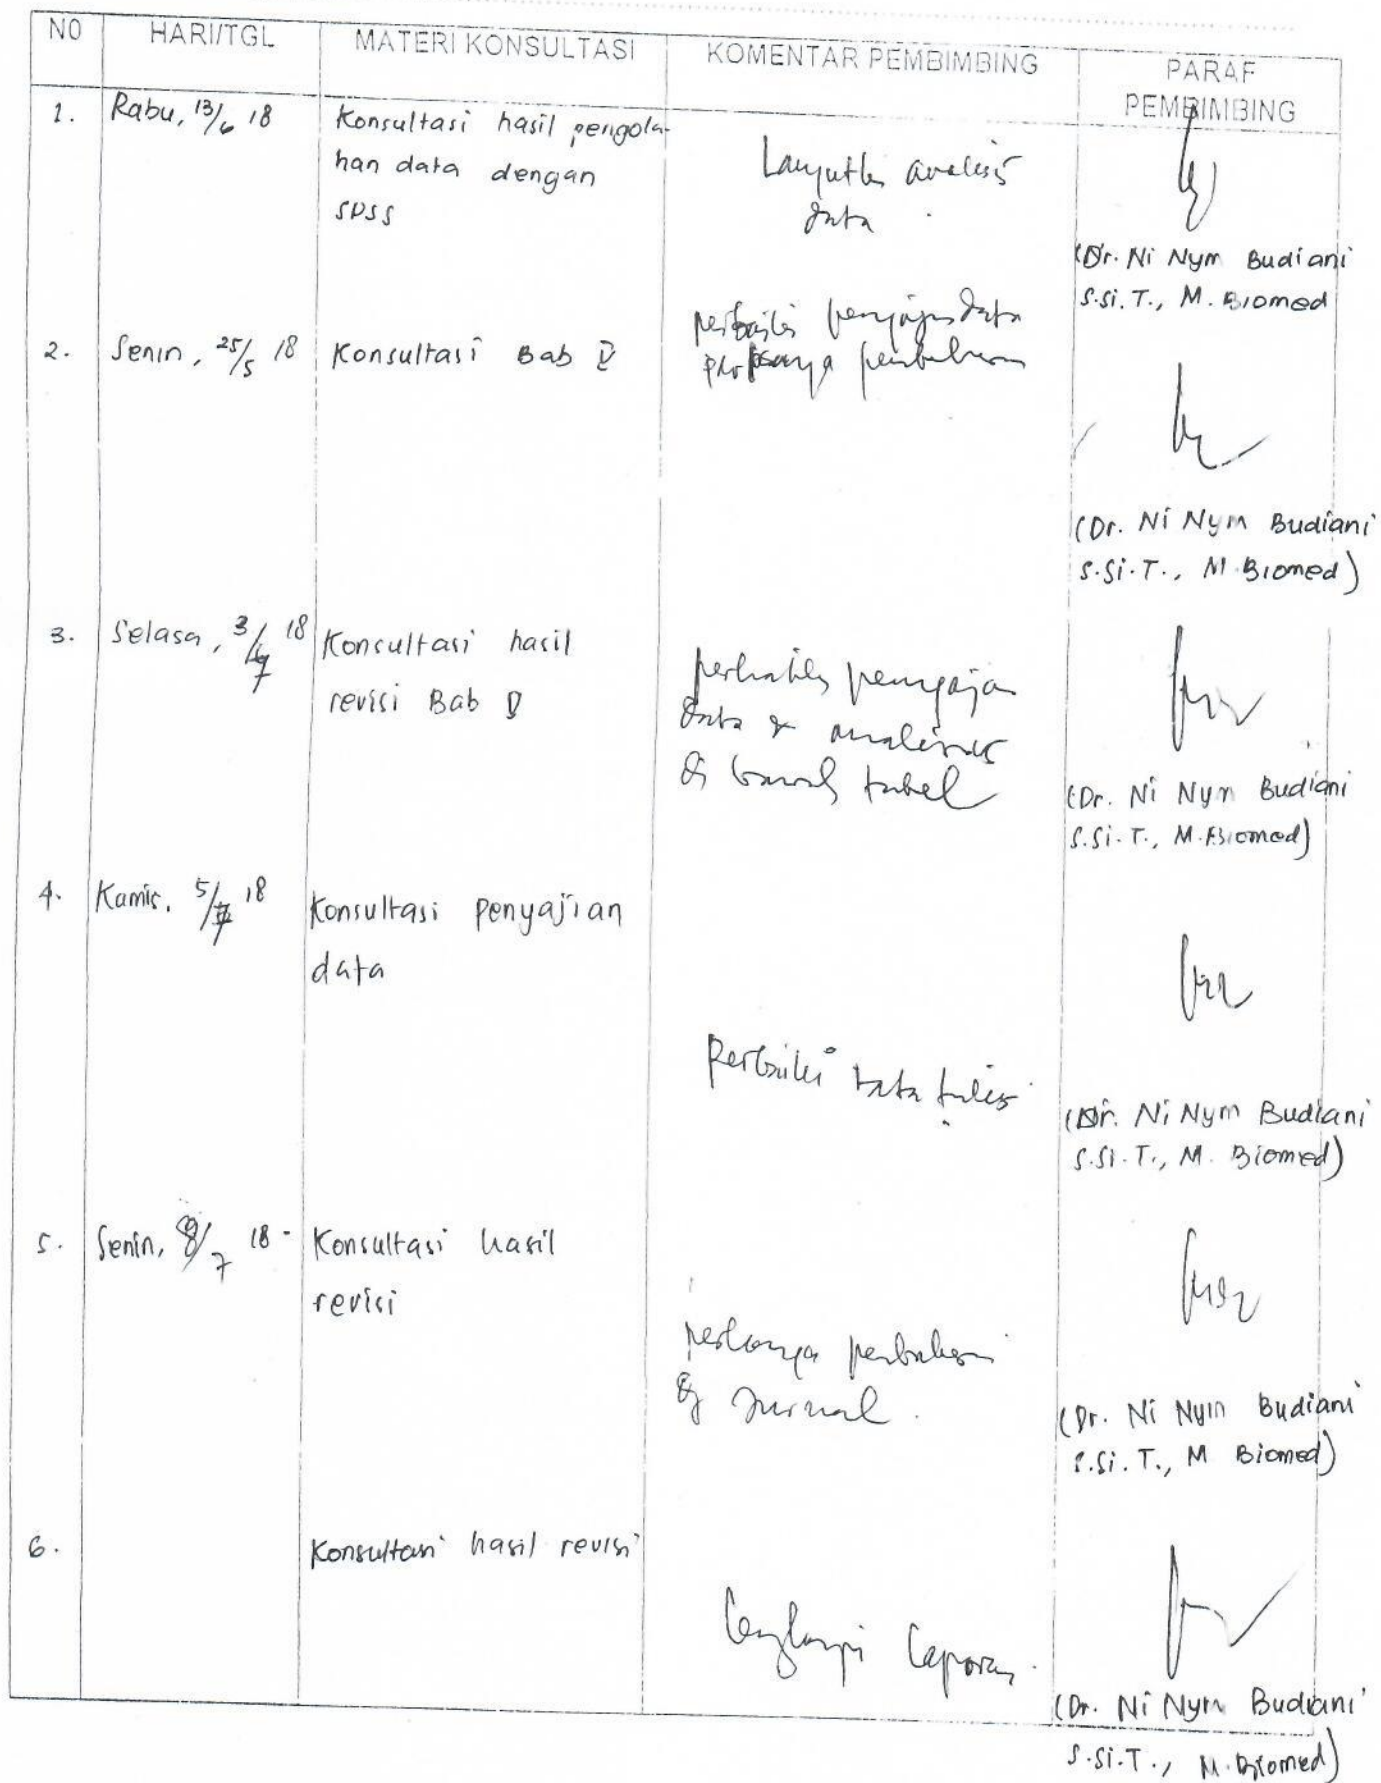 NO HARI/TGL MATERI KONSULTASI KOMENTAR PEMBIMBING PARAF PEMBIMBING
1. Rabu, 13/6 18 Konsultasi hasil pengola-
han data dengan
SPSS
Lanjutkn analisis
data.
(Dr. Ni Nym Budiani
S.Si.T., M. Biomed
2. Senin, 25/5 18 Konsultasi Bab V
perbaiki data
(Dr. Ni Nym Budiani
S.Si.T., M. Biomed)
3. Selasa, 3/7 18 Konsultasi hasil
revisi Bab V
data & analisis
di bawah tabel
(Dr. Ni Nym Budiani
S.Si.T., M. Biomed)
4. Kamis, 5/7 18 Konsultasi penyajian
data
Perbaiki tata tulis
(Dr. Ni Nym Budiani
S.Si.T., M. Biomed)
5. Senin, 9/7 18 - Konsultasi hasil
revisi
Jurnal.
(Dr. Ni Nym Budiani
S.Si.T., M Biomed)
6. Konsultasi hasil revisi
Lengkapi laporan.
(Dr. Ni Nym Budiani
S.Si.T., M. Biomed)